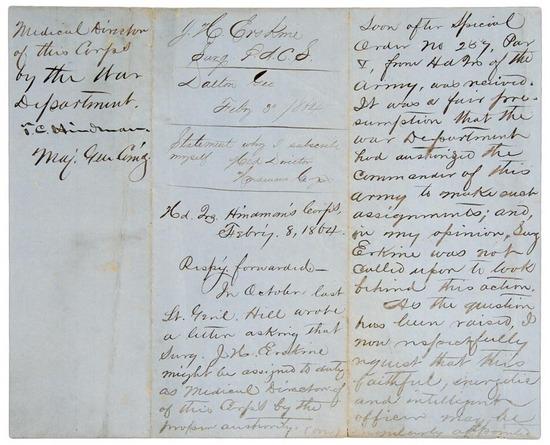 J. H. Erskine
Surg. P. A. C. S.
Dalton Geo
Feby 3d 1864
Statement why I subscribe
myself Med Director
Hindmans Corps
Hd. Qrs. Hindman's Corps,
Feb'y. 8, 1864.
Resp'y. forwarded—
In October last
Lt. Gen'l. Hill wrote
a letter asking that
Surg. J. H. Erskine
might be assigned to duty
as Medical Director of
of this Corps by the
proper authority.
Soon after Special
Order No 257, Par
V, from Hd Qrs of the
Army, was received.
It was a fair pre-
sumption that the
War Department
had authorized the
Commander of this
Army to make such
assignments; and,
in my opinion, Surg
Erskine was not
called upon to look
behind this action.
As the question
has been raised, I
now respectfully
request that this
faithful, energetic
and intelligent
officer may be
Medical Director
of this Corps
by the War
Department.
T. C. Hindman
Maj. Gen Com'g